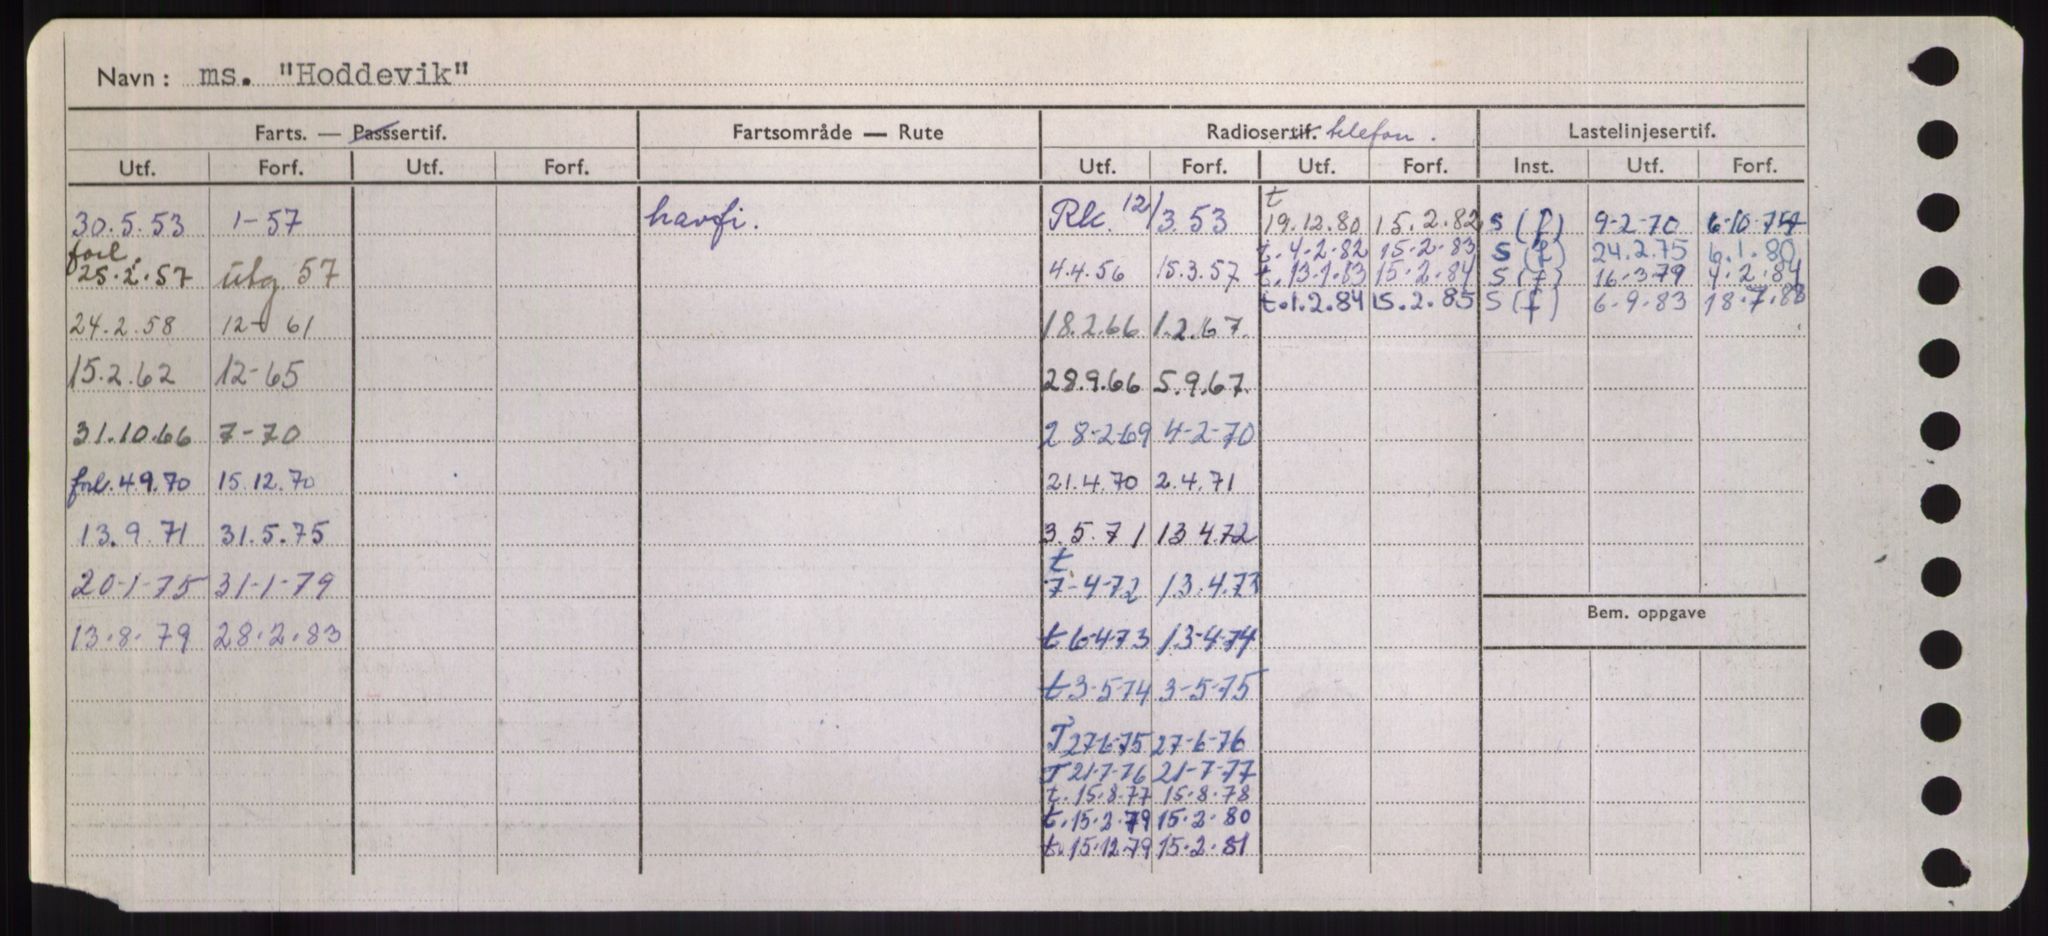 Navn: ms. "Hoddevik"
Farts. — Passsertif. Fartsområde — Rute Radiosertif. telefon. Lastelinjesertif.
Utf. Forf. Utf. Forf. Utf. Forf. Utf. Forf. Inst. Utf. Forf.
30.5.53 1-57 havfi. Rk. 12/3.53 t 19.12.80 15.2.82 S (f) 9-2-70
t. 4-2-82 15-2-83 S (f) 24.2.75 6.1.80
forl. 25.2.57 utg 57 4.4.56 15.3.57 t. 13-1-83 15-2-84 S (f) 16-3-79 4-2-84
t. 1.2.84 15.2.85 S (f) 6-9-83 18-7-88
24.2.58 12-61 18.2.66 1.2.67.
15.2.62 12-65 28.9.66 5.9.67.
31.10.66 7-70 28-2-69 4-2-70
forl. 4.9.70 15.12.70 21.4.70 2.4.71
13.9.71 31.5.75 3.5.71 13 4.72
20-1-75 31-1-79 t 7-4-72 13.4.73
13.8.79 28.2.83 t 6-4-73 13-4-74
Bem. oppgave
t 3-5-74 3-5-75
T 27-6-75 27-6-76
T 21-7-76 21-7-77
t. 15.8.77 15.8.78
t. 15.2.79 15.2.80
t. 15.12.79 15.2.81